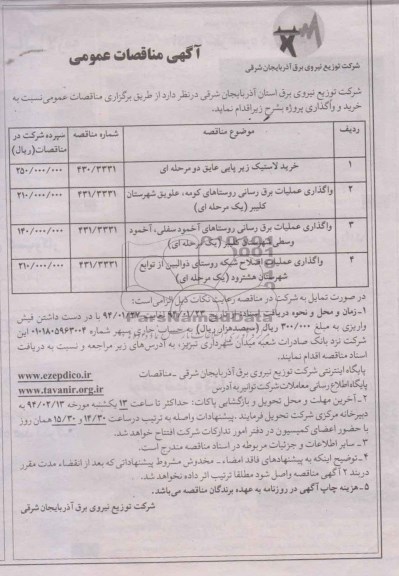 شرکت توزیع نیروی برق آذربایجان شرقی
آگهی مناقصات عمومی
شرکت توزیع نیروی برق استان آذربایجان شرقی درنظر دارد از طریق برگزاری مناقصات عمومی نسبت به
خرید و واگذاری پروژه بشرح زیر اقدام نماید.
ردیف موضوع مناقصه شماره مناقصه سپرده شرکت در مناقصات(ریال)
۱ خرید لاستیک زیر پایی عایق دو مرحله ای ۴۳۰/۳۳۳۱ ۲۵۰/۰۰۰/۰۰۰
۲ واگذاری عملیات برق رسانی روستاهای کومه، علویق شهرستان
کلیبر (یک مرحله ای) ۴۳۱/۳۳۳۱ ۲۱۰/۰۰۰/۰۰۰
۳ واگذاری عملیات برق رسانی روستاهای آخمود سفلی، آخمود
وسطی شهرستان کلیبر (یک مرحله ای) ۴۳۱/۳۳۳۱ ۱۴۰/۰۰۰/۰۰۰
۴ واگذاری عملیات اصلاح شبکه روستای ذوالبین از توابع
شهرستان هشترود (یک مرحله ای) ۴۳۱/۳۳۳۱ ۳۱۰/۰۰۰/۰۰۰
در صورت تمایل به شرکت در مناقصه رعایت نکات ذیل الزامی است:
۱- زمان و محل و نحوه دریافت اسناد: از تاریخ ۹۴/۰۱/۲۳ لغایت ۹۴/۰۱/۲۷ با در دست داشتن فیش
واریزی به مبلغ ۳۰۰/۰۰۰ ریال (سیصدهزار ریال) به حساب جاری سپهر شماره ۰۱۰۱۸۰۵۹۶۳۰۰۴ این
شرکت نزد بانک صادرات شعبه میدان شهرداری تبریز، به آدرس‌های زیر مراجعه و نسبت به دریافت
اسناد مناقصه اقدام نمایند.
پایگاه اینترنتی شرکت توزیع نیروی برق آذربایجان شرقی - مناقصات www.ezepdico.ir
پایگاه اطلاع رسانی معاملات شرکت توانیر به آدرس www.tavanir.org.ir
۲- آخرین مهلت و محل تحویل و بازگشایی پاکات: حداکثر تا ساعت ۱۳ یکشنبه مورخه ۹۴/۰۲/۱۳ به
دبیرخانه مرکزی شرکت تحویل فرمایند. پیشنهادات واصله به ترتیب در ساعت ۱۴/۳۰ و ۱۵/۳۰ همان روز
با حضور اعضای کمیسیون در دفتر امور تدارکات شرکت افتتاح خواهد شد.
۳- سایر اطلاعات و جزئیات مربوطه در اسناد مناقصه مندرج است.
۴- توضیح اینکه به پیشنهادهای فاقد امضاء - مخدوش مشروط پیشنهاداتی که بعد از انقضاء مدت مقرر
در بند ۲ آگهی مناقصه واصل شود مطلقا ترتیب اثر داده نخواهد شد.
۵- هزینه چاپ آگهی در روزنامه به عهده برندگان مناقصه می‌باشد.
شرکت توزیع نیروی برق آذربایجان شرقی
ParsNamadData